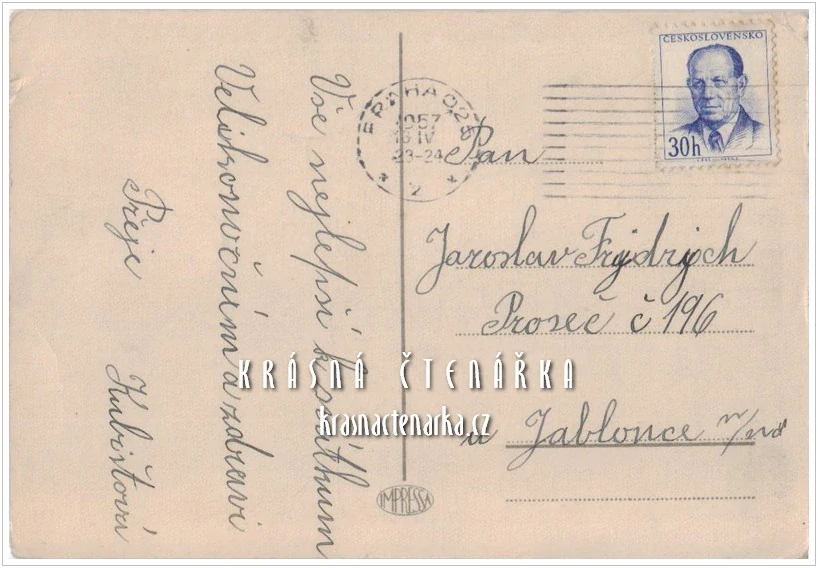 Vše nejlepší k svátkum
Velikonočním a zdraví
Přeje Kubištovi
PRAHA 028
1957
16 IV
23-24
* 2 *
ČESKOSLOVENSKO
30h
Pan
Jaroslav Frýdrých
Proseč č 196
u Jablonce n/nis
KRÁSNÁ ČTENÁŘKA
krasnactenarka.cz
IMPRESSA